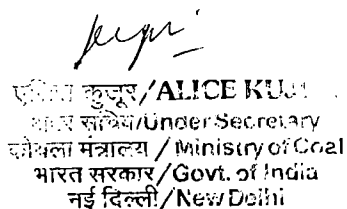 एलिस कुजूर/ALICE KU
अवर सचिव/Under Secretary
कोयला मंत्रालय / Ministry of Coal
भारत सरकार/Govt. of India
नई दिल्ली/New Delhi